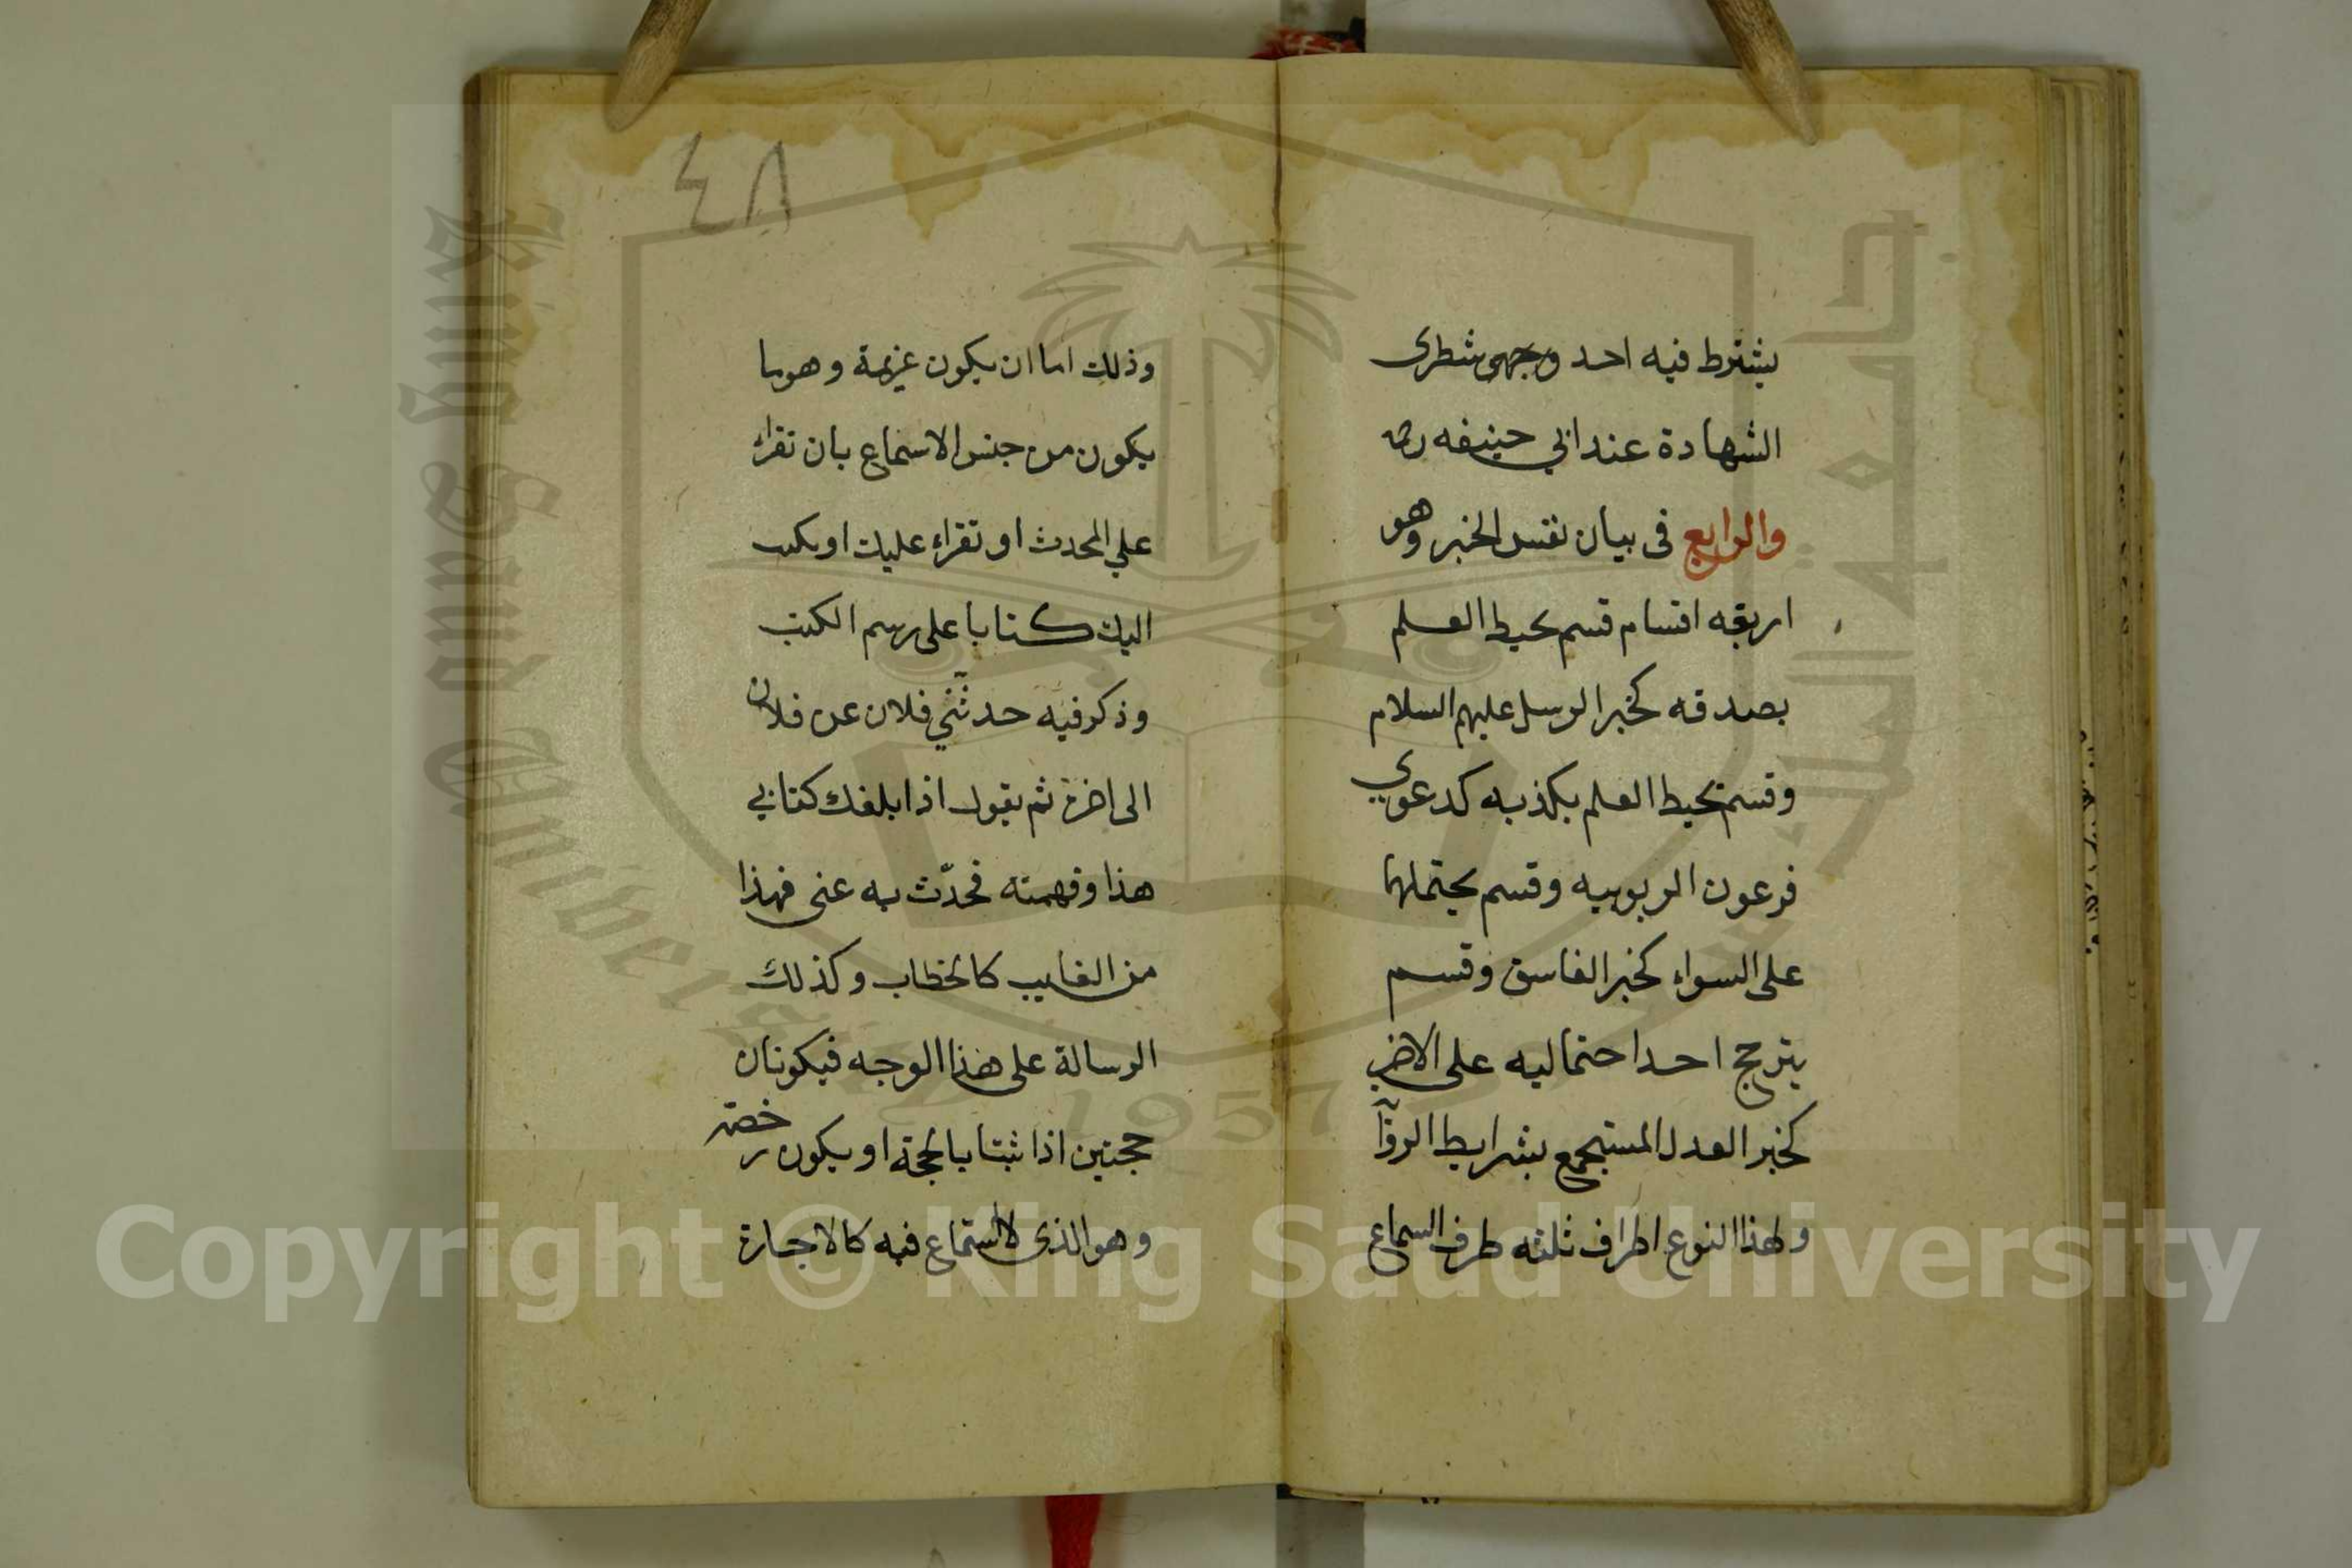 يشترط فيه احد وجهى شطرى
الشهادة عند ابي حنيفه رحمه
والرابع فى بيان نفس الخبر وهو
اربعه اقسام قسم يحيط العلم
بصدقه كخبر الرسل عليهم السلام
وقسم يحيط العلم بكذبه كدعوي
فرعون الربوبيه وقسم يحتملهما
على السواء كخبر الفاسق وقسم
يترجح احد احتماليه على الاخر
كخبر العدل المستجمع بشرايط الرواة
ولهذا النوع اطراف ثلثه طرف السماع
٤٨
وذلك اما ان يكون عزيمة وهو ما
يكون من جنس الاسماع بان تقراء
علي المحدث او تقراء عليك او يكتب
اليك كتابا على رسم الكتب
وذكر فيه حدثني فلان عن فلان
الى اخره ثم يقول اذا بلغك كتابي
هذا وفهمته فحدّث به عنى فهذا
من الغايب كالخطاب وكذلك
الرسالة على هذا الوجه فيكونان
حجتين اذا ثبتا بالحجة او يكون رخصة
وهو الذى لا استماع فيه كالاجازة
King Saud University
جامعة الملك سعود
1957
Copyright © King Saud University